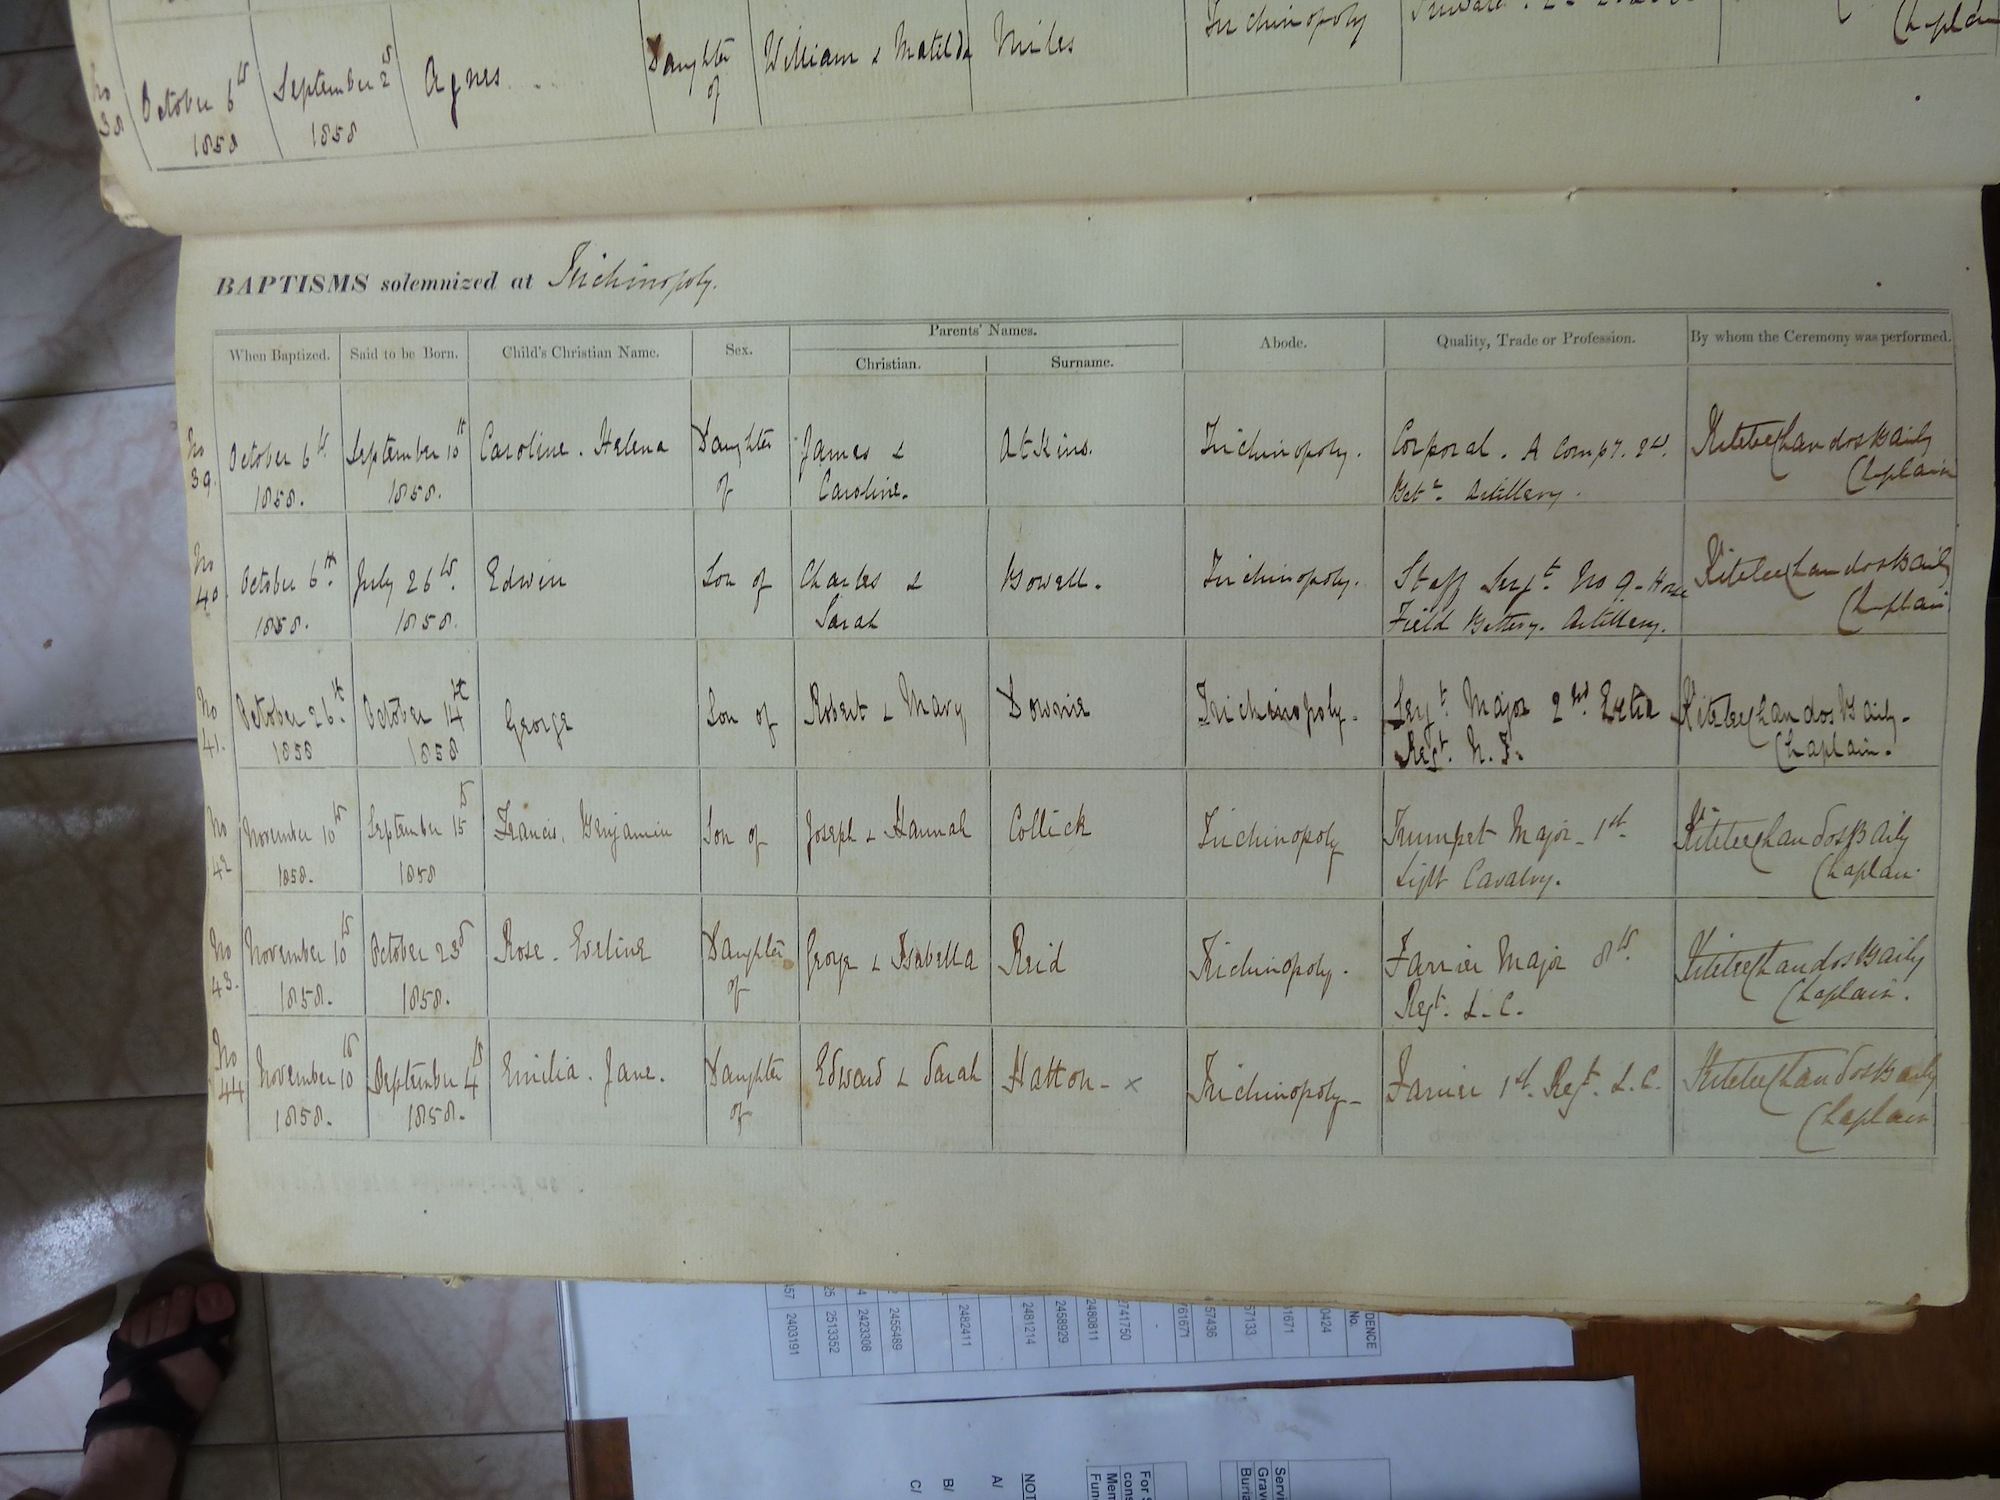 No 38 October 6th 1858 September 2d 1858 Agnes Daughter of William & Matilda Miles Trichinopoly Chaplain
BAPTISMS solemnized at Trichinopoly.
Parents' Names.
When Baptized. Said to be Born. Child's Christian Name. Sex. Christian. Surname. Abode. Quality, Trade or Profession. By whom the Ceremony was performed.
No October 6th September 10th Caroline. Helena Daughter James & Atkins. Trichinopoly. Corporal. A Compy. 2d.
39. 1858. 1858. of Caroline. Batn. Artillery. Chaplain
No October 6th. July 26th. Edwin Son of Charles & Bowell. Trichinopoly. Staff Sergt. No 9. Horse
40. 1858. 1858. Sarah Field Battery. Artillery. Chaplain
No October 26th. October 14th George Son of Robert & Mary Downie Trichinopoly. Sergt. Major 2nd. Extra
41. 1858 1858 Regt. N. I. Chaplain.
No November 10th September 15th Francis. Benjamin Son of Joseph & Hannah Collick Trichinopoly Trumpet Major. 1st.
42 1858. 1858 Light Cavalry. Chaplain.
No November 10th October 23d Rose. Eveline Daughter George & Isabella Reid Trichinopoly. Farrier Major 8th.
43. 1858. 1858. of Regt. L. C. Chaplain.
No November 10th September 4th Emilia. Jane. Daughter Edward & Sarah Hatton - x Trichinopoly - Farrier 1st. Regt. L. C.
44 1858. 1858. of Chaplain
457 2403191
25 2513352
4 2423308
2 2455489
2482411
2481214
2458929
2480811
2741750
761671
57436
57133
1671
0424
DENCE
No.
C/
B/
A/
NOT
For S
cons
Mem
Fun
Servi
Grav
Buria